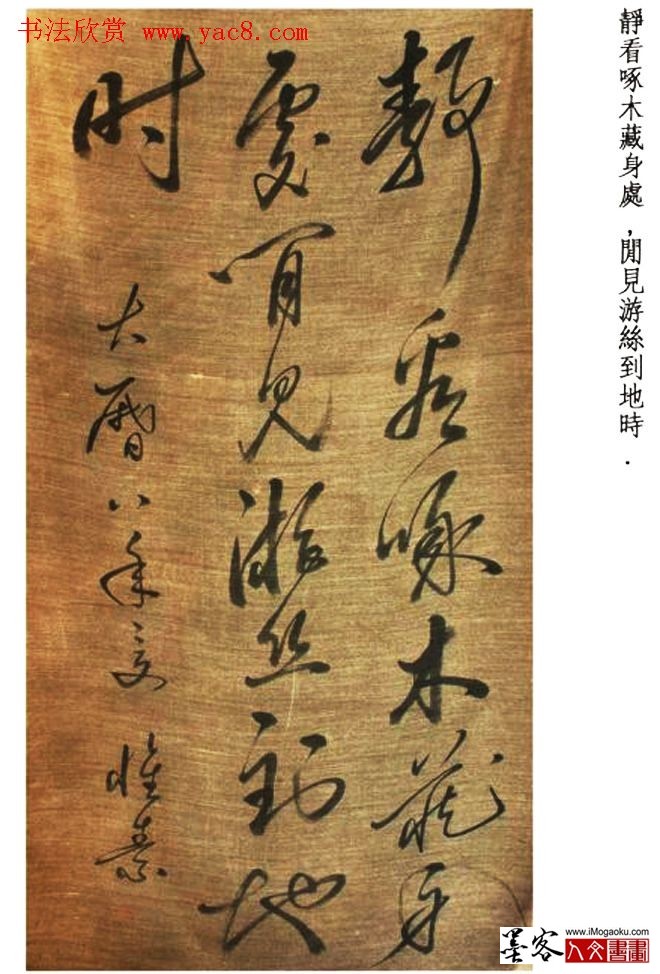 书法欣赏 www.yac8.com
靜看啄木藏身處，閒見游絲到地時．
靜看啄木藏身
處閒見游丝到地
时
大曆八年三 懷素
墨客
www.iMogaoku.com
人文書畫